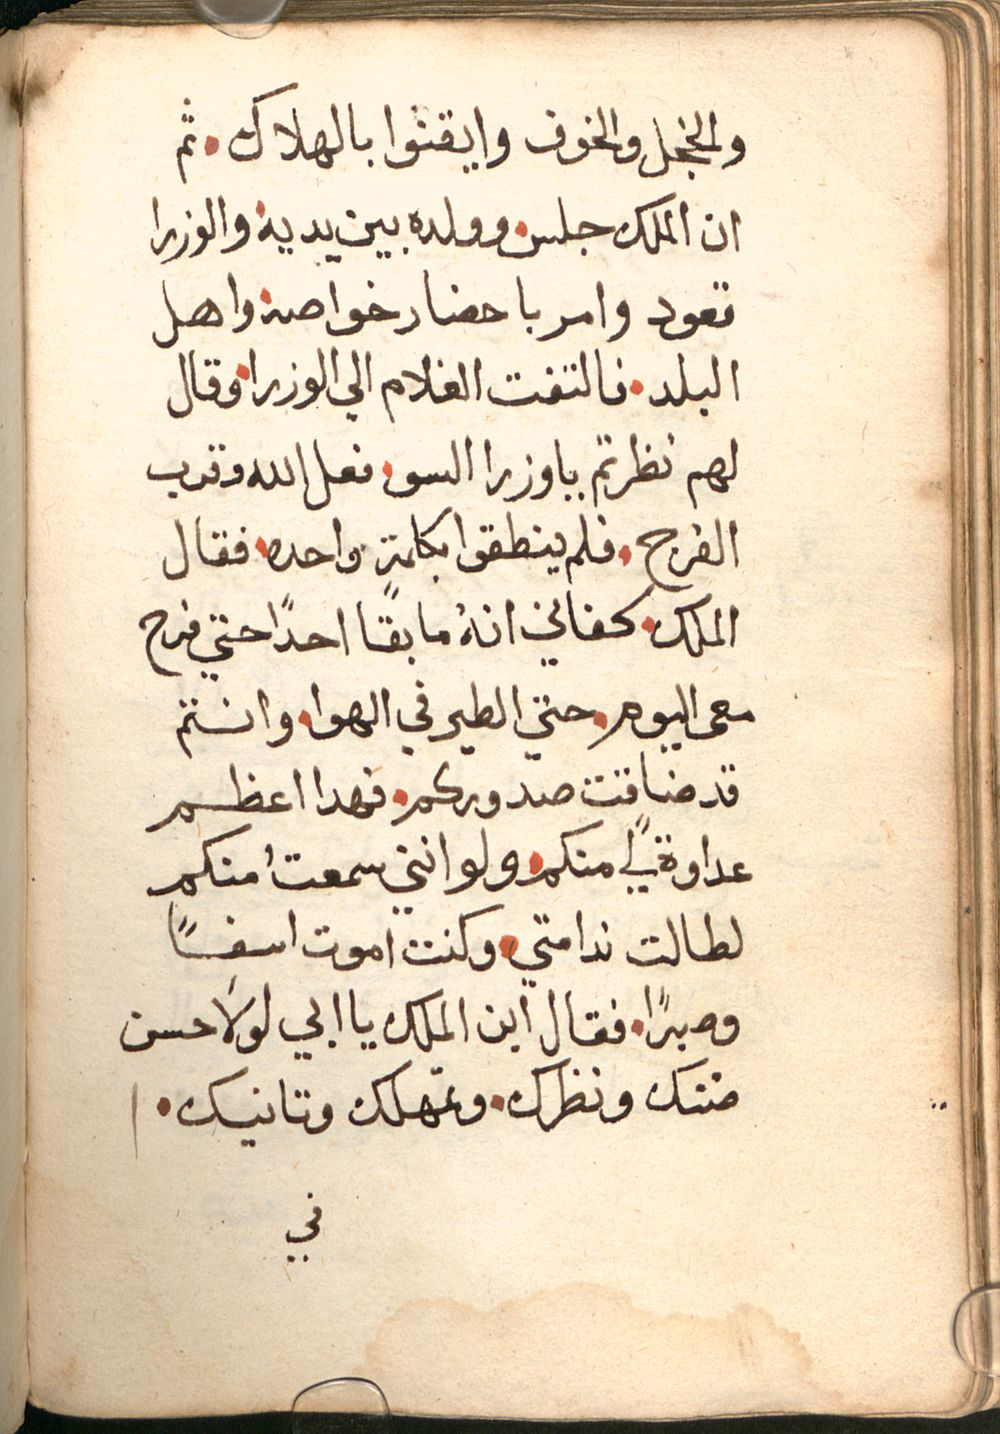 والخجل والخوف وايقنوا بالهلاك. ثم
ان الملك جلس. وولده بين يديه. والوزرا
قعود وامر باحضار خواصه. واهل
البلد. فالتفت الغلام الي الوزرا. وقال
لهم نظرتم ياوزرا السو. فعل الله وقرب
الفرج. فلم ينطقوا بكلمةٍ واحده. فقال
الملك. كفاني انهُ ما بقا احدًا حتي فرح
معي اليوم. حتي الطير في الهوا. وانتم
قد ضاقت صدوركم. فهدا اعظم
عداوةً لي منكم. ولو انني سمعتُ منكم
لطالت ندامتي. وكنت اموت اسفًا
وصبرًا. فقال ابن الملك يا ابي لولا حسن
ضنك ونظرك. وتمهلك وتانيك.
في